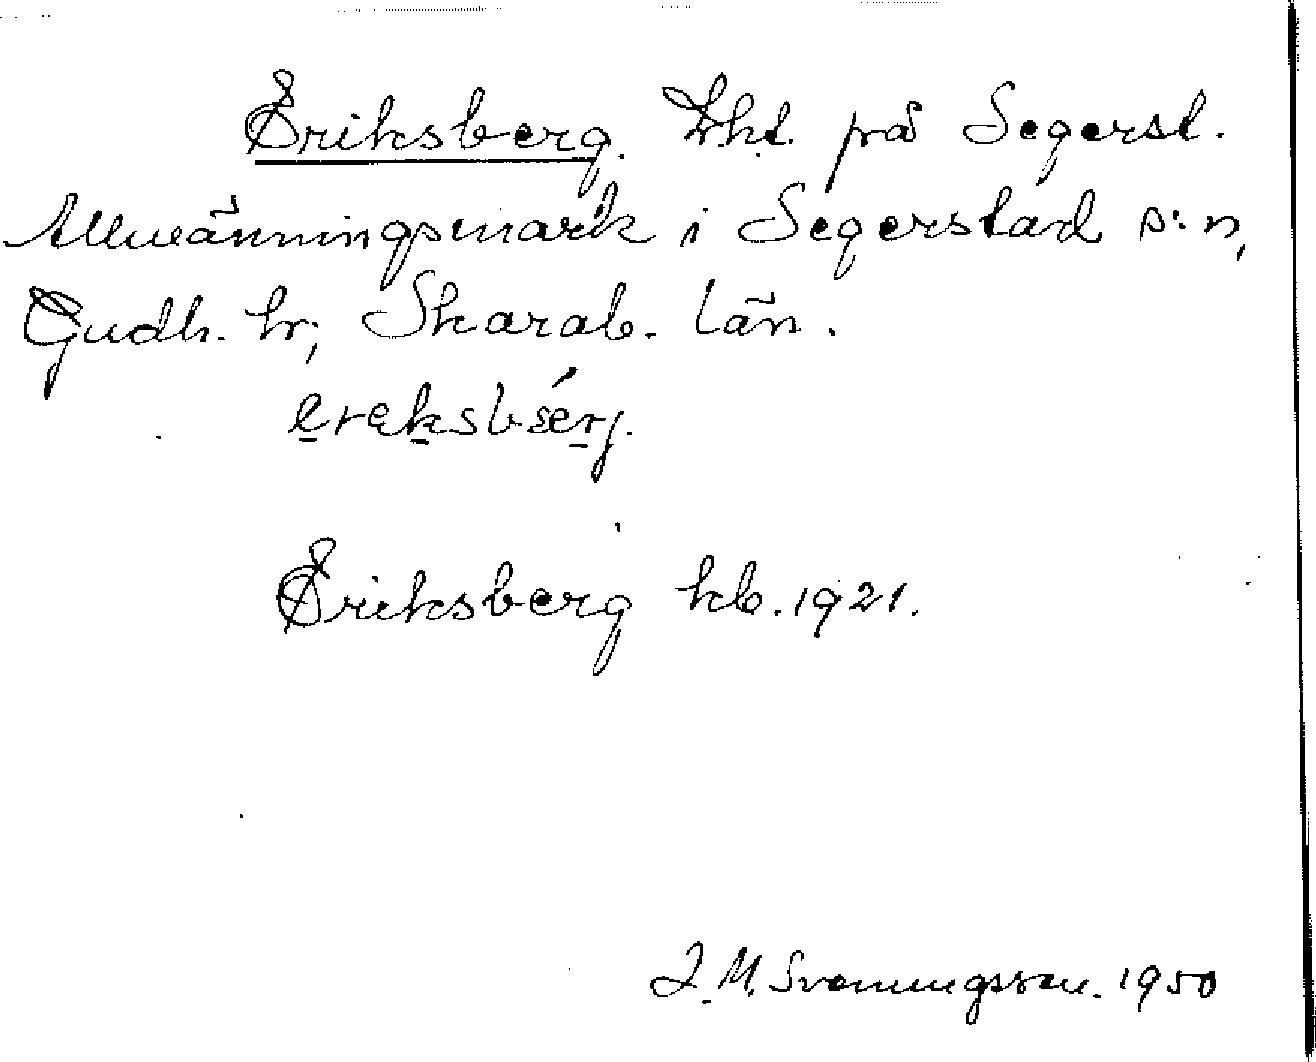 Eriksberg. Lht. på Segerst.
Allmänningsmark i Segerstad s:n,
Gudh. hr, Skarab. län.
Eriksberg hb. 1921.
J. M. Svenningsson. 1950